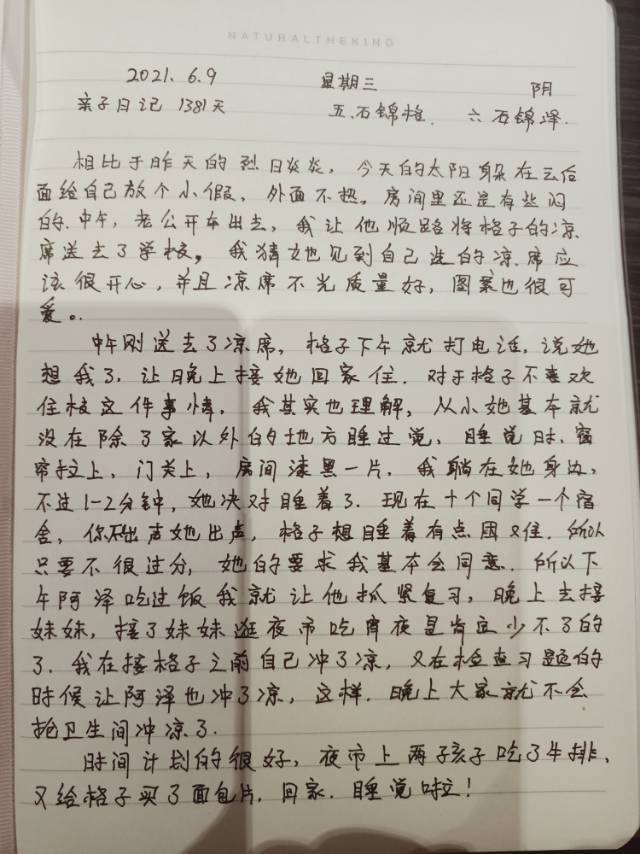 NATURALTHEKING
2021.6.9 星期三 阴
亲子日记 1381天 五.石锦格. 六石锦泽.
相比于昨天的烈日炎炎，今天的太阳躲在云后
面给自己放个小假，外面不热。房间里还是有些闷
的.中午，老公开车出去，我让他顺路将格子的凉
席送去了学校。我猜她见到自己选的凉席应
该很开心，并且凉席不光质量好，图案也很可
爱。
中午刚送去了凉席，格子下午就打电话，说她
想我了，让晚上接她回家住.对于格子不喜欢
住校这件事情，我其实也理解，从小她基本就
没在除了家以外的地方睡过觉，睡觉时、窗
帘拉上，门关上，房间漆黑一片，我躺在她身边，
不过1-2分钟，她决对睡着了.现在十个同学一个宿
舍，你不出声她出声，格子想睡着有点困难.所以
只要不很过分，她的要求我基本会同意.所以下
午阿泽吃过饭我就让他抓紧复习，晚上去接
妹妹，接了妹妹逛夜市吃宵夜是肯定少不了的
了.我在接格子之前自己冲了凉，又在检查习题的
时候让阿泽也冲了凉，这样.晚上大家就不会
抢卫生间冲凉了.
时间计划的很好，夜市上两子孩子吃了牛排、
又给格子买了面包片.回家.睡觉啦！